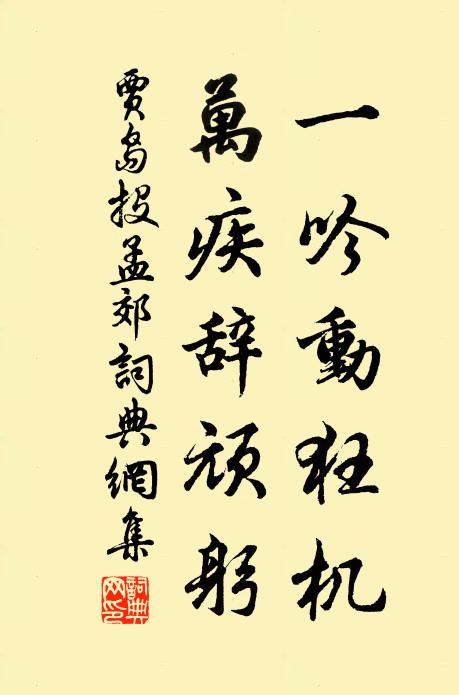 一吟動狂机
萬疾辞頑躬
賈島投孟郊詞典網集
詞典網印